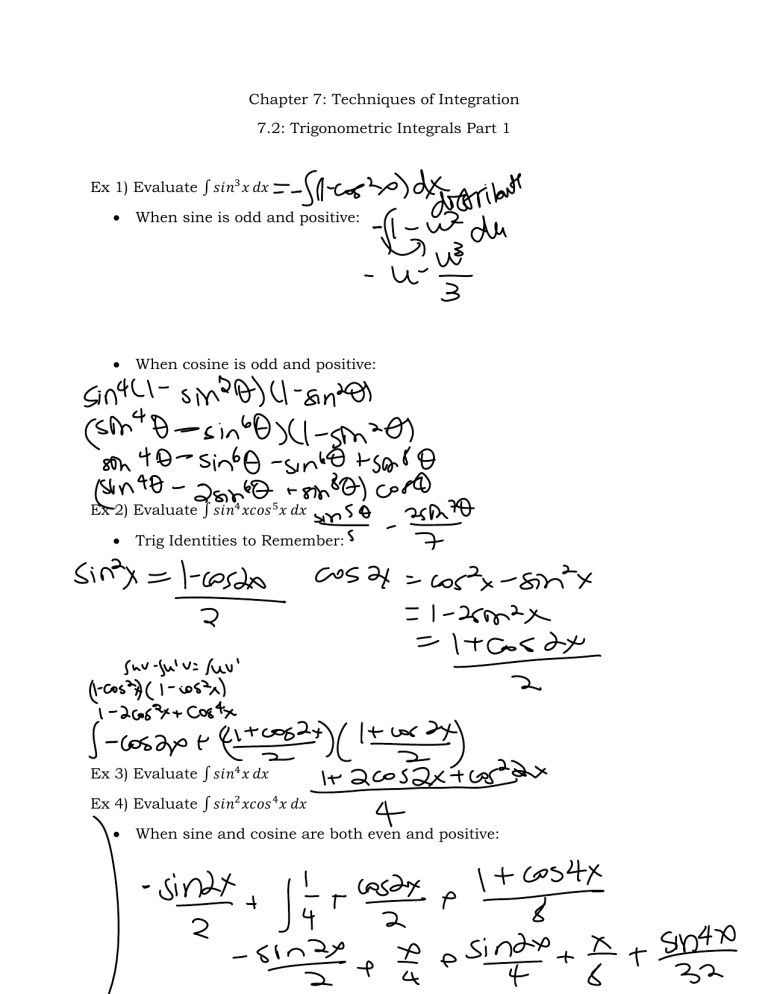 Chapter 7: Techniques of Integration
7.2: Trigonometric Integrals Part 1
Ex 1) Evaluate ∫ sin³x dx = -∫(1-cos²x) dx
• When sine is odd and positive:
-∫1 - u² du
- u - u³/3
• When cosine is odd and positive:
sin⁴(1 - sin²θ)(1 - sin²θ)
(sin⁴θ - sin⁶θ)(1 - sin²θ)
sin⁴θ - sin⁶θ - sin⁶θ + sin⁸θ
(sin⁴θ - 2sin⁶θ + sin⁸θ) cosθ
Ex 2) Evaluate ∫ sin⁴xcos⁵x dx sin⁵θ/5 - 2sin⁷θ/7
• Trig Identities to Remember:
sin²x = 1-cos2x/2 cos 2x = cos²x - sin²x
= 1 - 2sin²x
= 1 + cos 2x/2
∫uv - ∫u'v = ∫uv'
(1-cos²x)(1-cos²x)
1 - 2cos²x + cos⁴x
∫ -cos2x + (1+cos2x/2)(1+cos 2x/2)
Ex 3) Evaluate ∫ sin⁴x dx 1 + 2cos2x + cos²2x/4
Ex 4) Evaluate ∫ sin²xcos⁴x dx
• When sine and cosine are both even and positive:
-sin2x/2 + ∫ 1/4 + cos2x/2 + 1 + cos4x/8
-sin2x/2 + x/4 + sin2x/4 + x/8 + sin4x/32